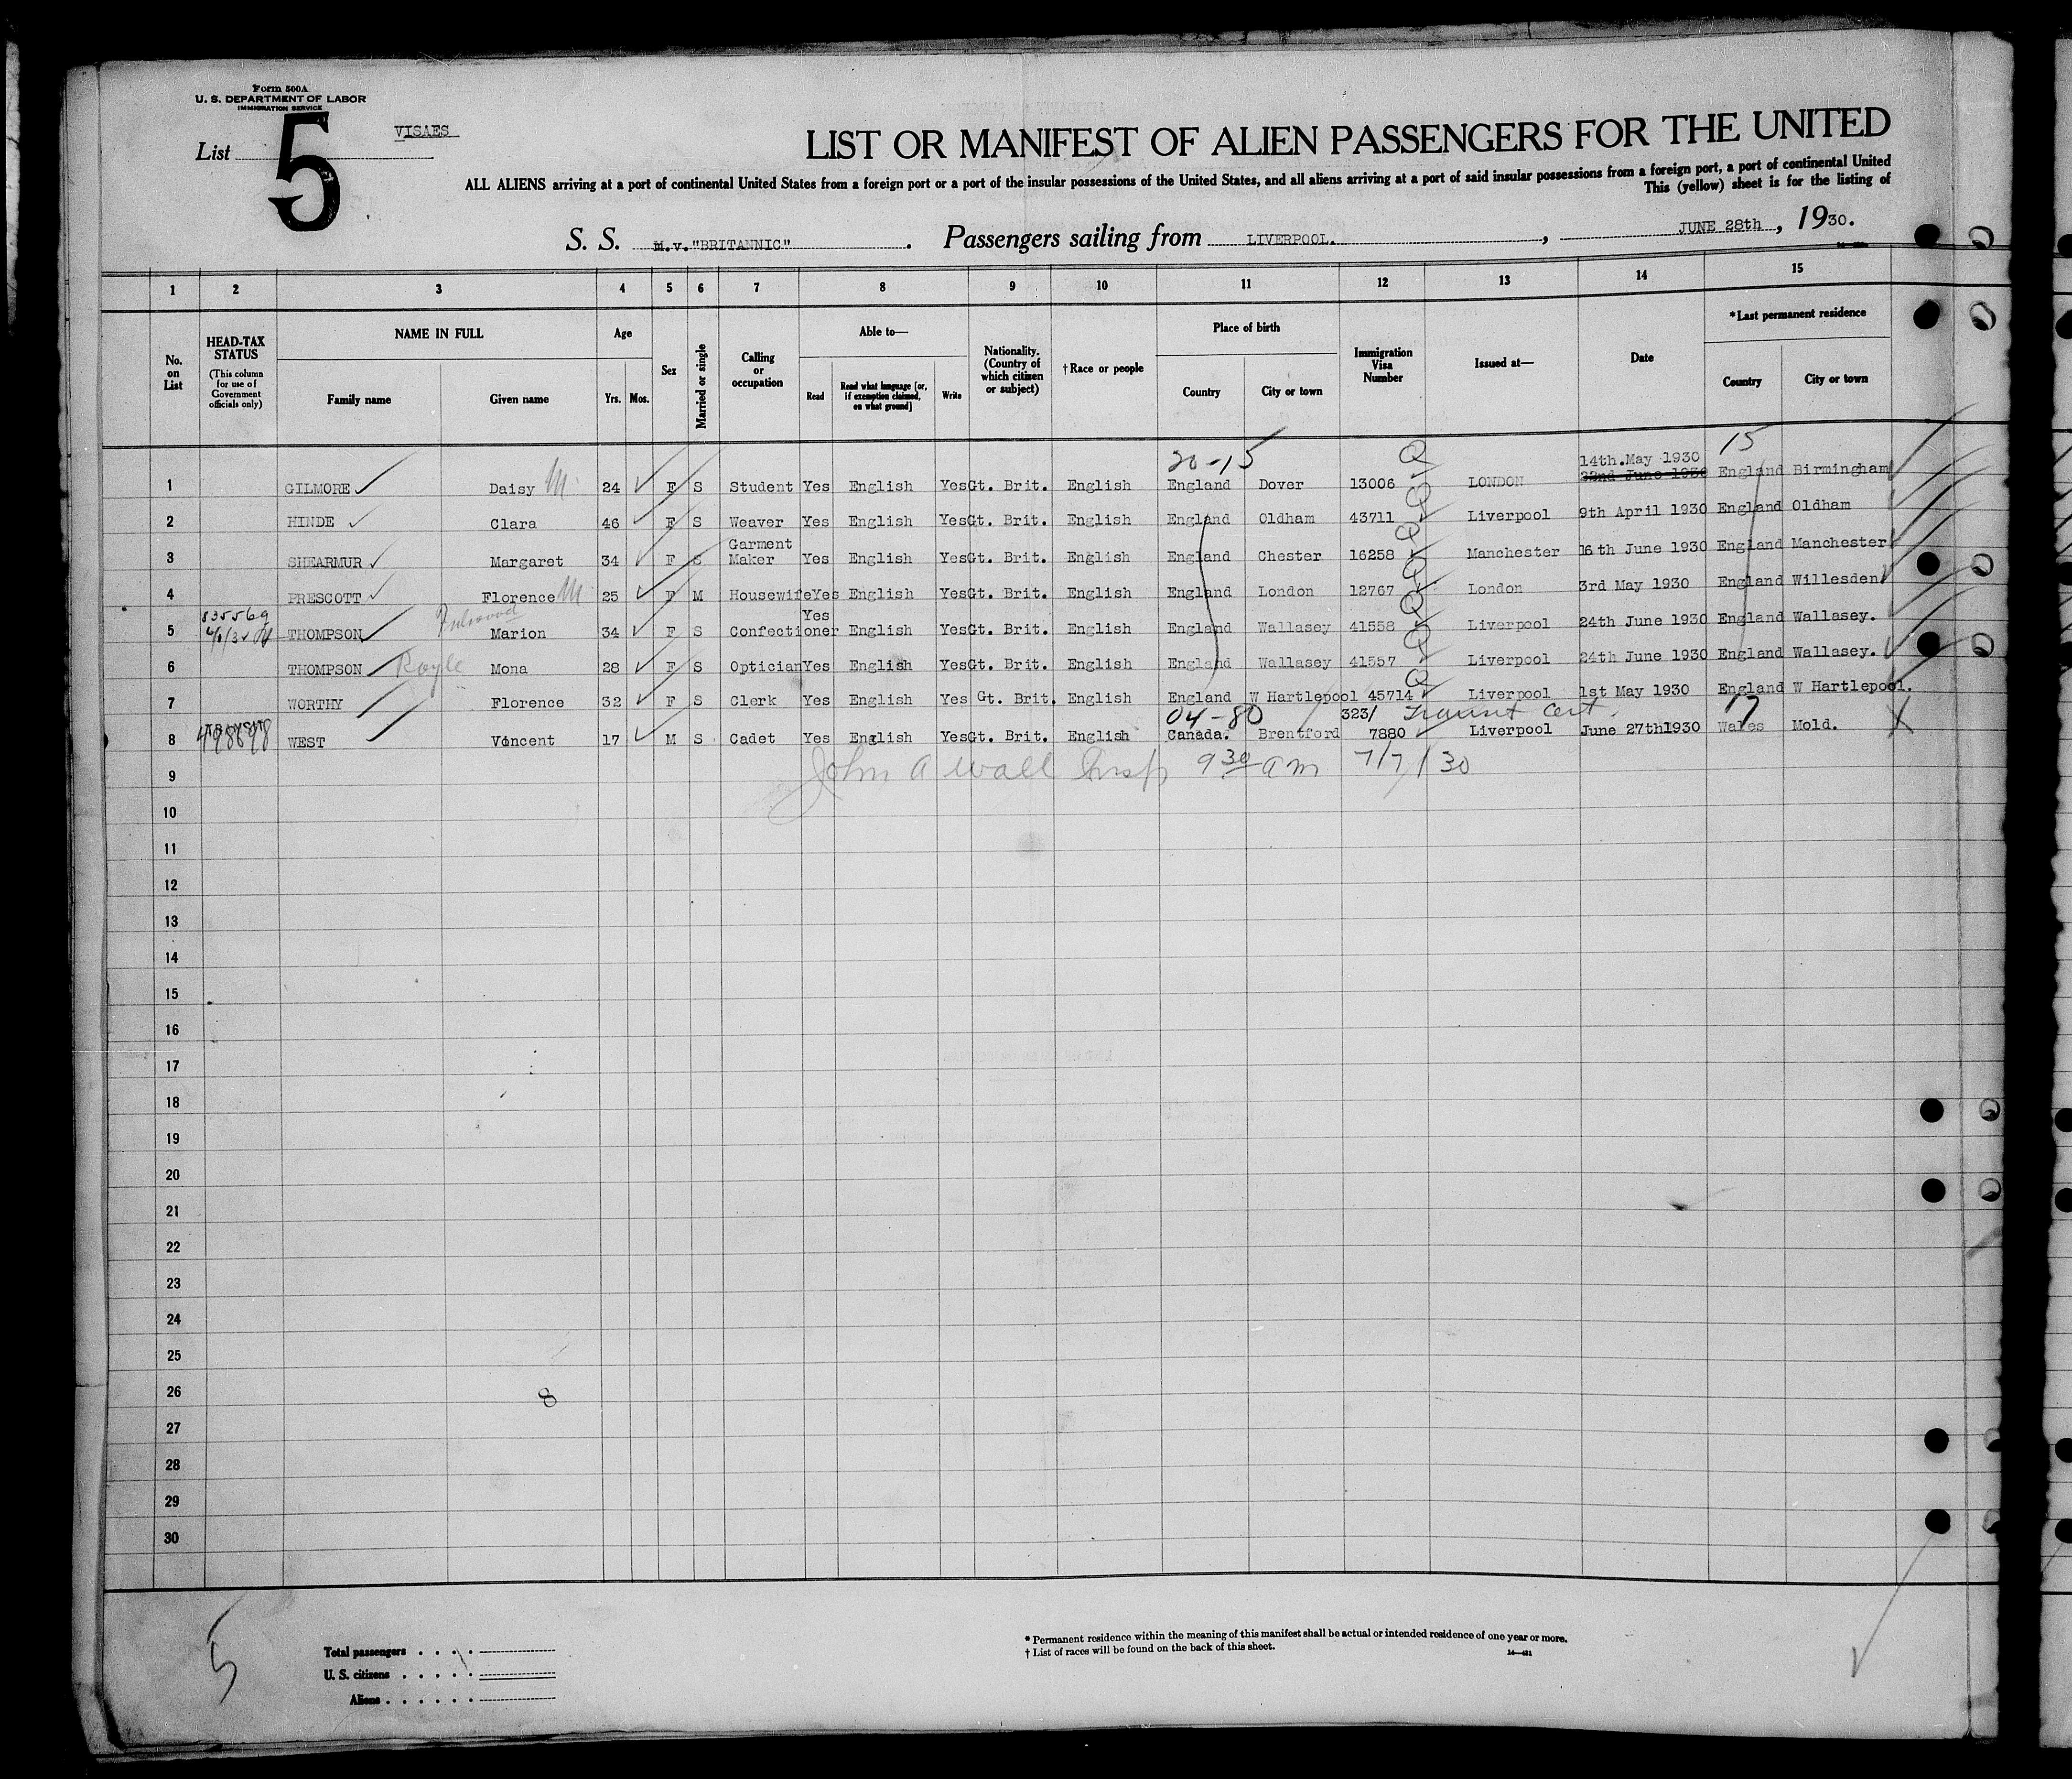 Form 500A
U. S. DEPARTMENT OF LABOR
IMMIGRATION SERVICE
List 5 VISAES
LIST OR MANIFEST OF ALIEN PASSENGERS FOR THE UNITED
ALL ALIENS arriving at a port of continental United States from a foreign port or a port of the insular possessions of the United States, and all aliens arriving at a port of said insular possessions from a foreign port, a port of continental United
This (yellow) sheet is for the listing of
S. S. M.v. "BRITANNIC" . Passengers sailing from LIVERPOOL. , JUNE 28th , 1930.
1 2 3 4 5 6 7 8 9 10 11 12 13 14 15
No. on List HEAD-TAX STATUS (This column for use of Government officials only) NAME IN FULL Family name Given name Age Yrs. Mos. Sex Married or single Calling or occupation Able to— Read Read what language [or, if exemption claimed, on what ground] Write Nationality. (Country of which citizen or subject) †Race or people Place of birth Country City or town Immigration Visa Number Issued at— Date *Last permanent residence Country City or town
20-15 14th.May 1930 15
1 GILMORE Daisy M 24 F S Student Yes English Yes Gt. Brit. English England Dover 13006 LONDON 22nd June 1930 England Birmingham
2 HINDE Clara 46 F S Weaver Yes English Yes Gt. Brit. English England Oldham 43711 Liverpool 9th April 1930 England Oldham
3 SHEARMUR Margaret 34 F S Garment Maker Yes English Yes Gt. Brit. English England Chester 16258 Manchester 16th June 1930 England Manchester
4 PRESCOTT Florence M 25 F M Housewife Yes English Yes Gt. Brit. English England London 12767 London 3rd May 1930 England Willesden
835569
5 THOMPSON Marion 34 F S Confectioner Yes English Yes Gt. Brit. English England Wallasey 41558 Liverpool 24th June 1930 England Wallasey.
6 THOMPSON Royle Mona 28 F S Optician Yes English Yes Gt. Brit. English England Wallasey 41557 Liverpool 24th June 1930 England Wallasey.
7 WORTHY Florence 32 F S Clerk Yes English Yes Gt. Brit. English England W Hartlepool 45714 Liverpool 1st May 1930 England W Hartlepool.
TRANSIT 04-80 323/ Transit Cert. 17
8 WEST Vincent 17 M S Cadet Yes English Yes Gt. Brit. English Canada. Brentford 7880 Liverpool June 27th1930 Wales Mold.
John A Wall Insp 9 30 am 7/7/30
9
10
11
12
13
14
15
16
17
18
19
20
21
22
23
24
25
26 8
27
28
29
30
5
Total passengers
U. S. citizens
Aliens
* Permanent residence within the meaning of this manifest shall be actual or intended residence of one year or more.
† List of races will be found on the back of this sheet.